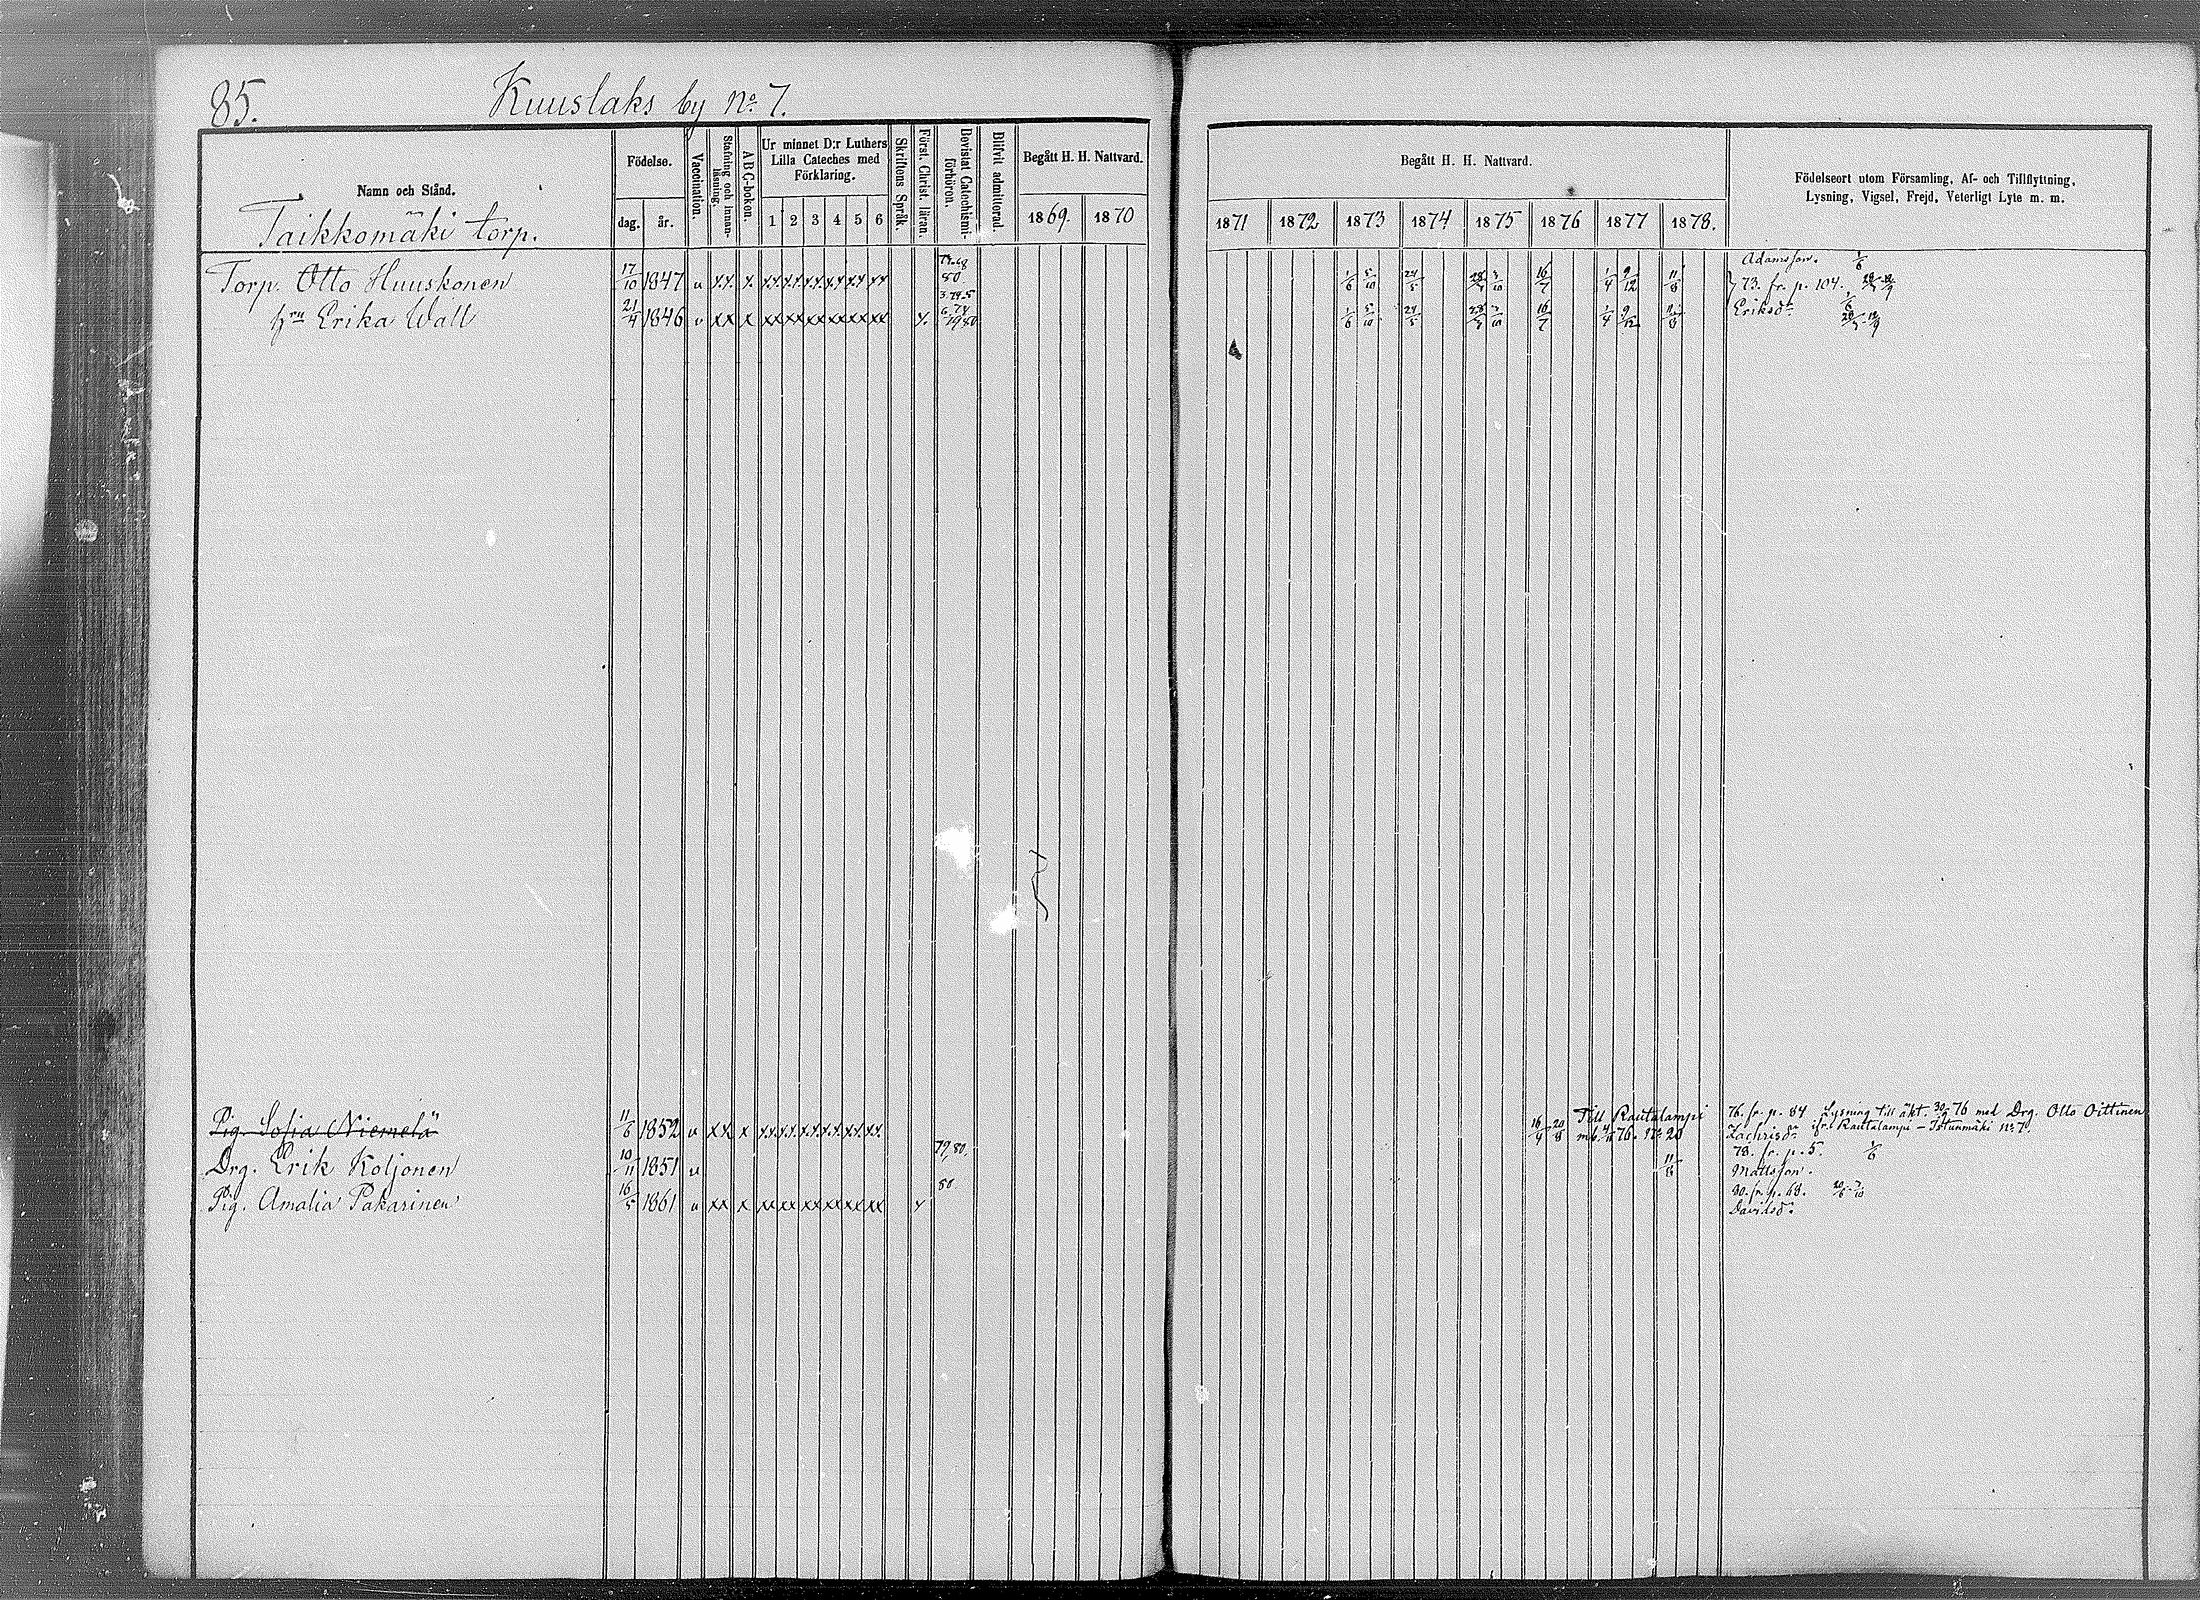 85.
Kuuslaks by No. 7.
Namn och Stånd.
Taikkomäki torp.
Födelse.
dag. år.
Vaccination.
Stafning och innan-läsning.
ABC-boken.
Ur minnet D:r Luthers
Lilla Cateches med
Förklaring.
1 2 3 4 5 6
Skriftens Språk.
Först. Christ. läran.
Bevistat Catechismi-förhören.
Blifvit admitterad.
Begått H. H. Nattvard.
1869. 1870
Begått H. H. Nattvard.
1871 1872 1873 1874 1875 1876 1877 1878.
Födelseort utom Församling, Af- och Tillflyttning,
Lysning, Vigsel, Frejd, Veterligt Lyte m. m.
Adamsson. 1/6
Torp. Otto Huuskonen 17/10 1847 v x.x. x. xx xx xx xx xx xx 80 1/6 5/10 24/5 28/3 3/10 16/7 1/4 9/12 11/8 73. fr. p. 104.
hru Erika Wätt 21/4 1846 v xx x xx xx xx xx xx xx x. 1/6 5/10 24/5 28/3 3/10 16/7 1/4 9/12 11/8 Eriksdr
Pig. Sofia Niemelä 11/6 1852 v xx x xx xx xx xx xx xx 16/4 20/8 Till Rautalampi 76. fr. p. 84 Lysning till äkt. 30/9 76 med Drg. Otto Oittinen
mb. 4/11 76. No 20 Zachrisdr ifr. Rautalampi – Istunmäki No 7.
Drg. Erik Koljonen 10/11 1851 v 79,80. 11/8 78. fr. p. 5. 1/6
Mattsson.
Pig. Amalia Pakarinen 16/5 1861 v xx x xx xx xx xx xx xx x 80 80. fr. p. 68.
Davidsdr